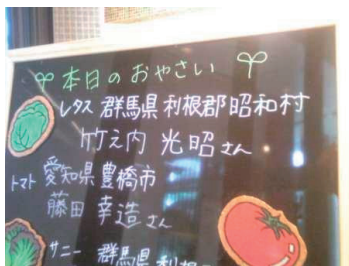 本日のおやさい
レタス 群馬県利根郡昭和村
竹之内 光昭さん
トマト 愛知県豊橋市
藤田 幸造さん
サニー 群馬県 利根